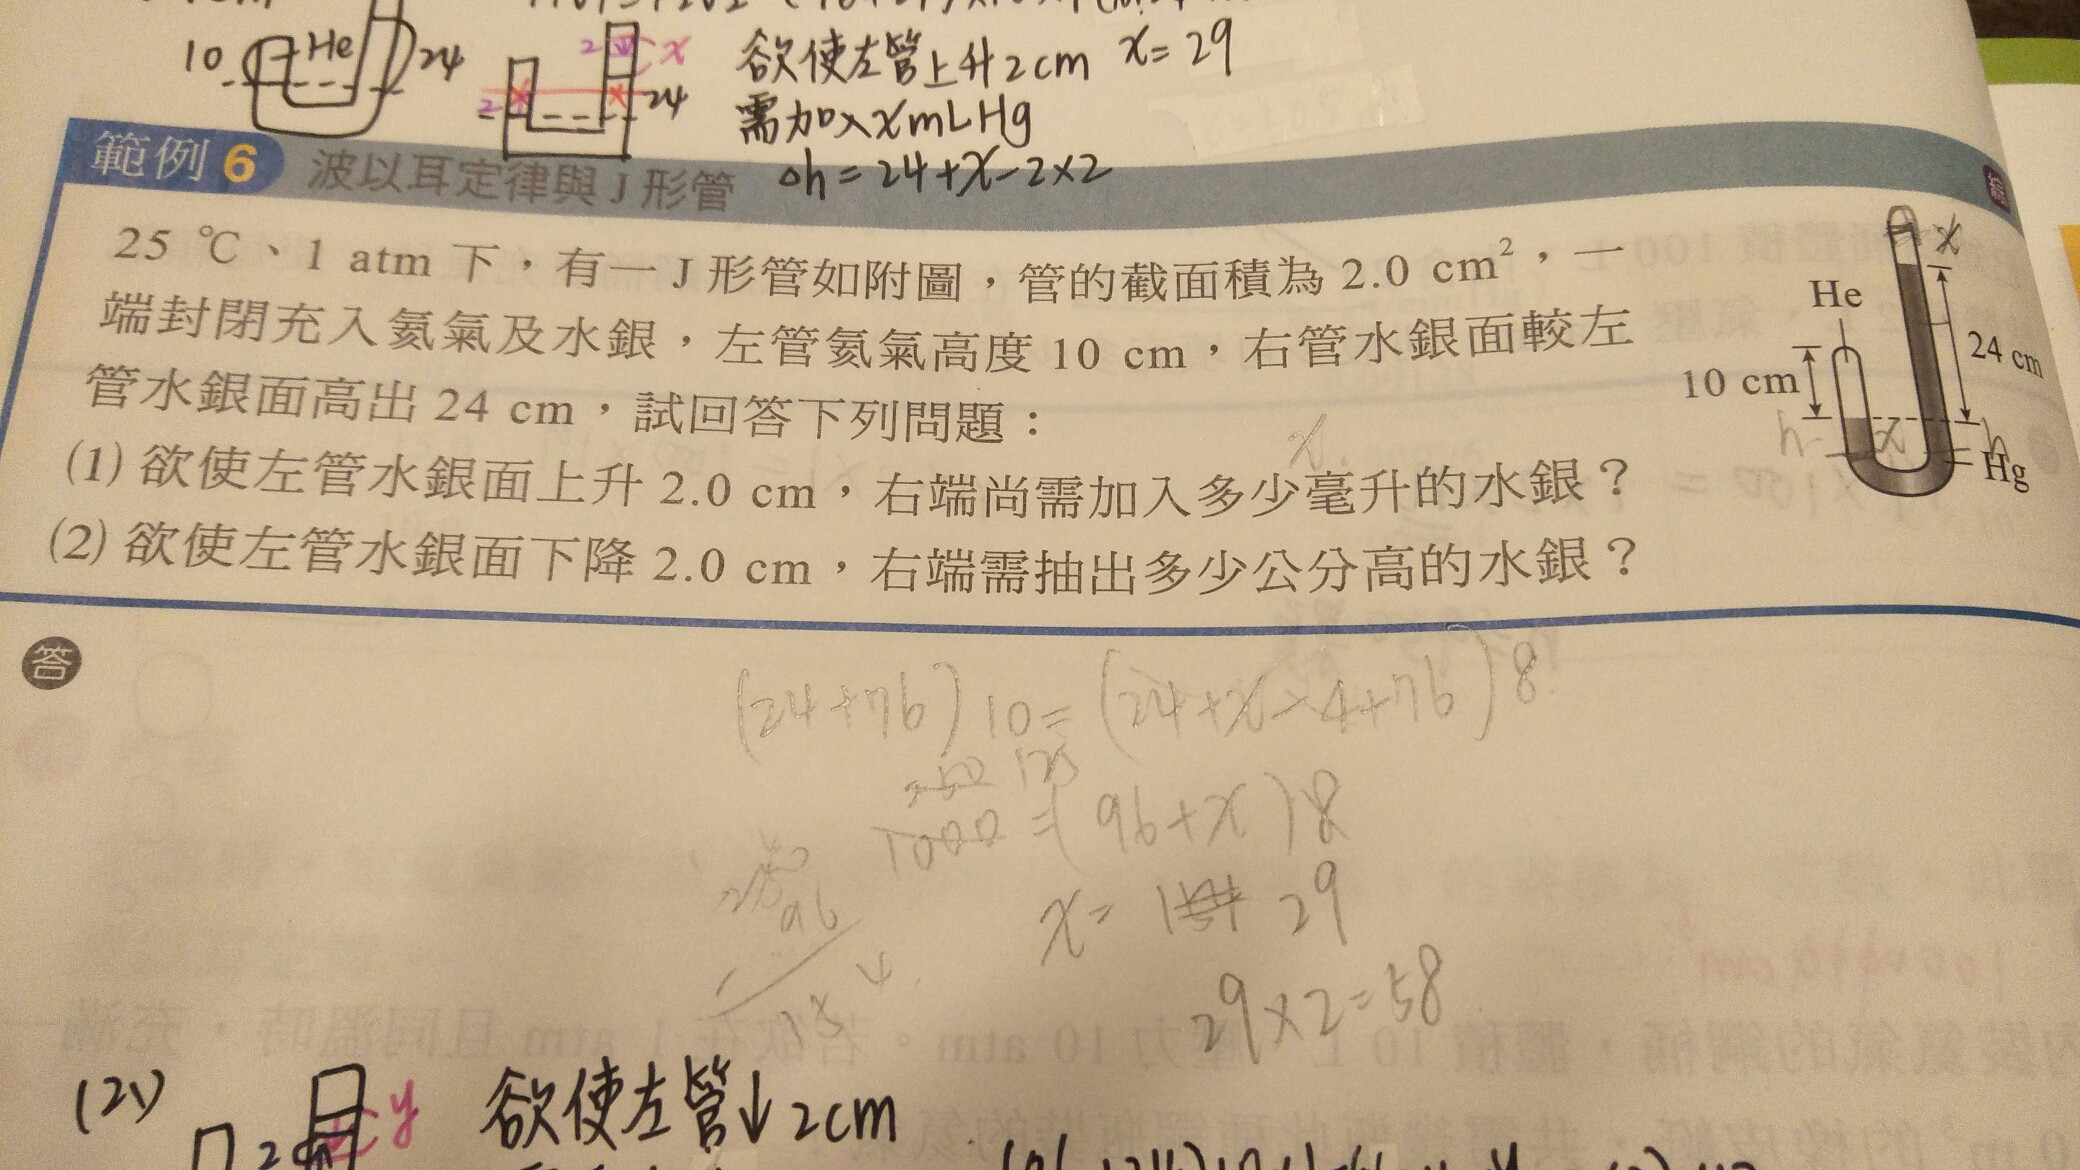 10 He 24
2 x
2 24
欲使左管上升2cm x=29
需加入xmLHg
△h=24+x-2×2
範例 6 波以耳定律與 J 形管
25 ℃、1 atm 下，有一 J 形管如附圖，管的截面積為 2.0 cm²，一
端封閉充入氦氣及水銀，左管氦氣高度 10 cm，右管水銀面較左
管水銀面高出 24 cm，試回答下列問題：
(1) 欲使左管水銀面上升 2.0 cm，右端尚需加入多少毫升的水銀？
(2) 欲使左管水銀面下降 2.0 cm，右端需抽出多少公分高的水銀？
x
He
24 cm
10 cm
h x h
Hg
x
答
(24+76)10=(24+x-4+76)8
125
1000=(96+x)8
96
x= 29
29×2=58
(2) y
2cm
欲使左管↓2cm